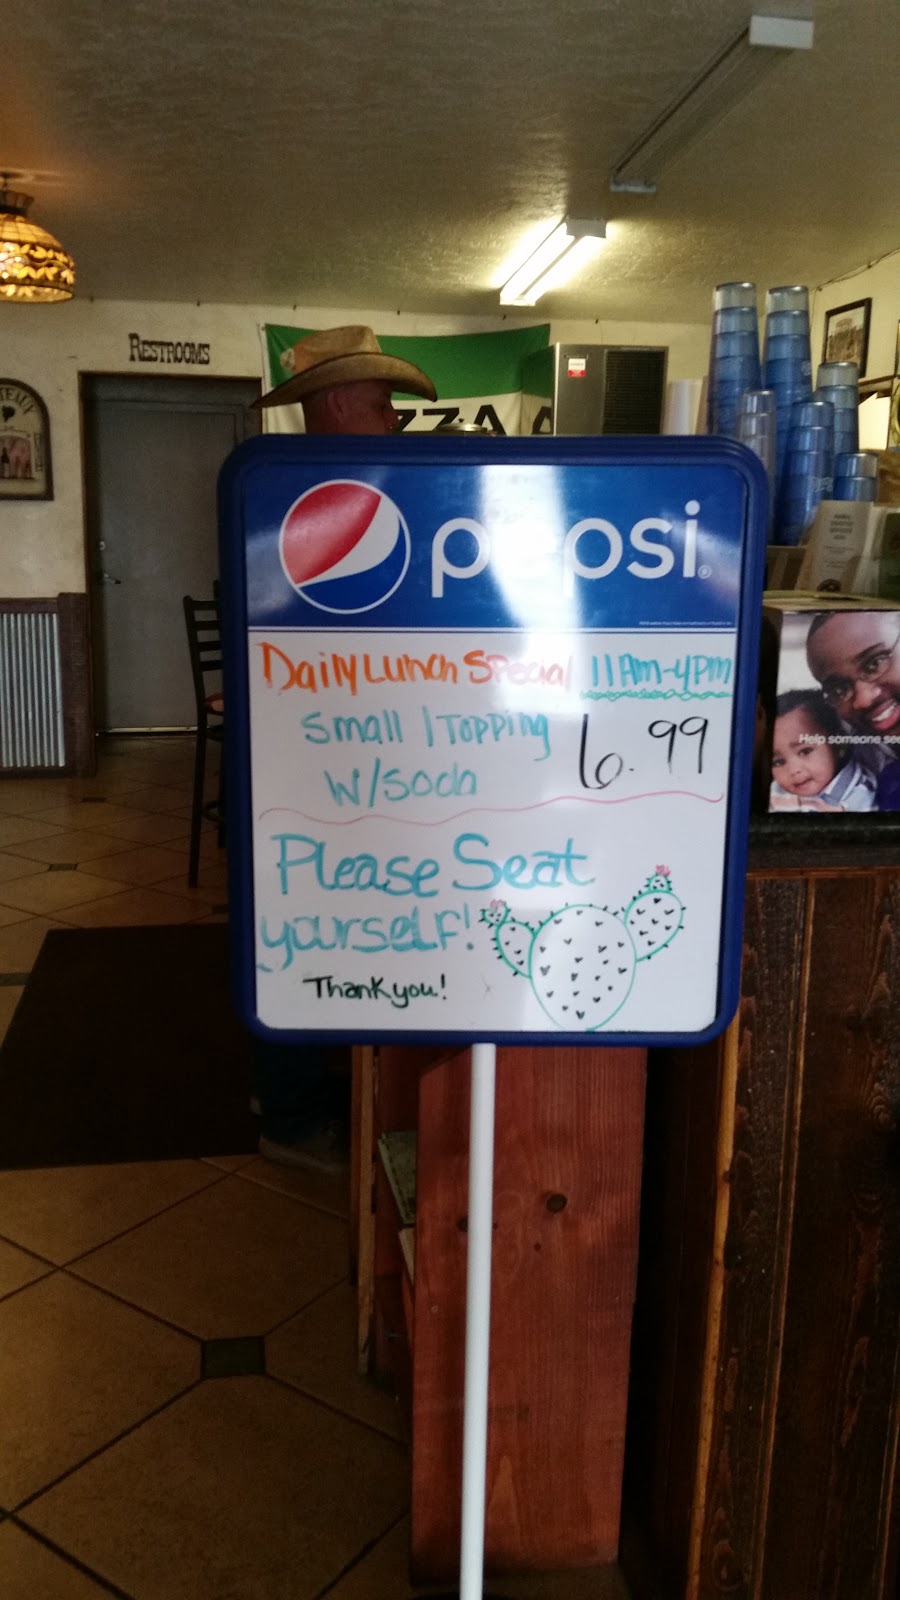 RESTROOMS
ZZA A
pepsi
Daily Lunch Special 11Am-4pm
Small 1 Topping
W/Soda
6.99
Please Seat
yourself!
Thank you!
Help someone see